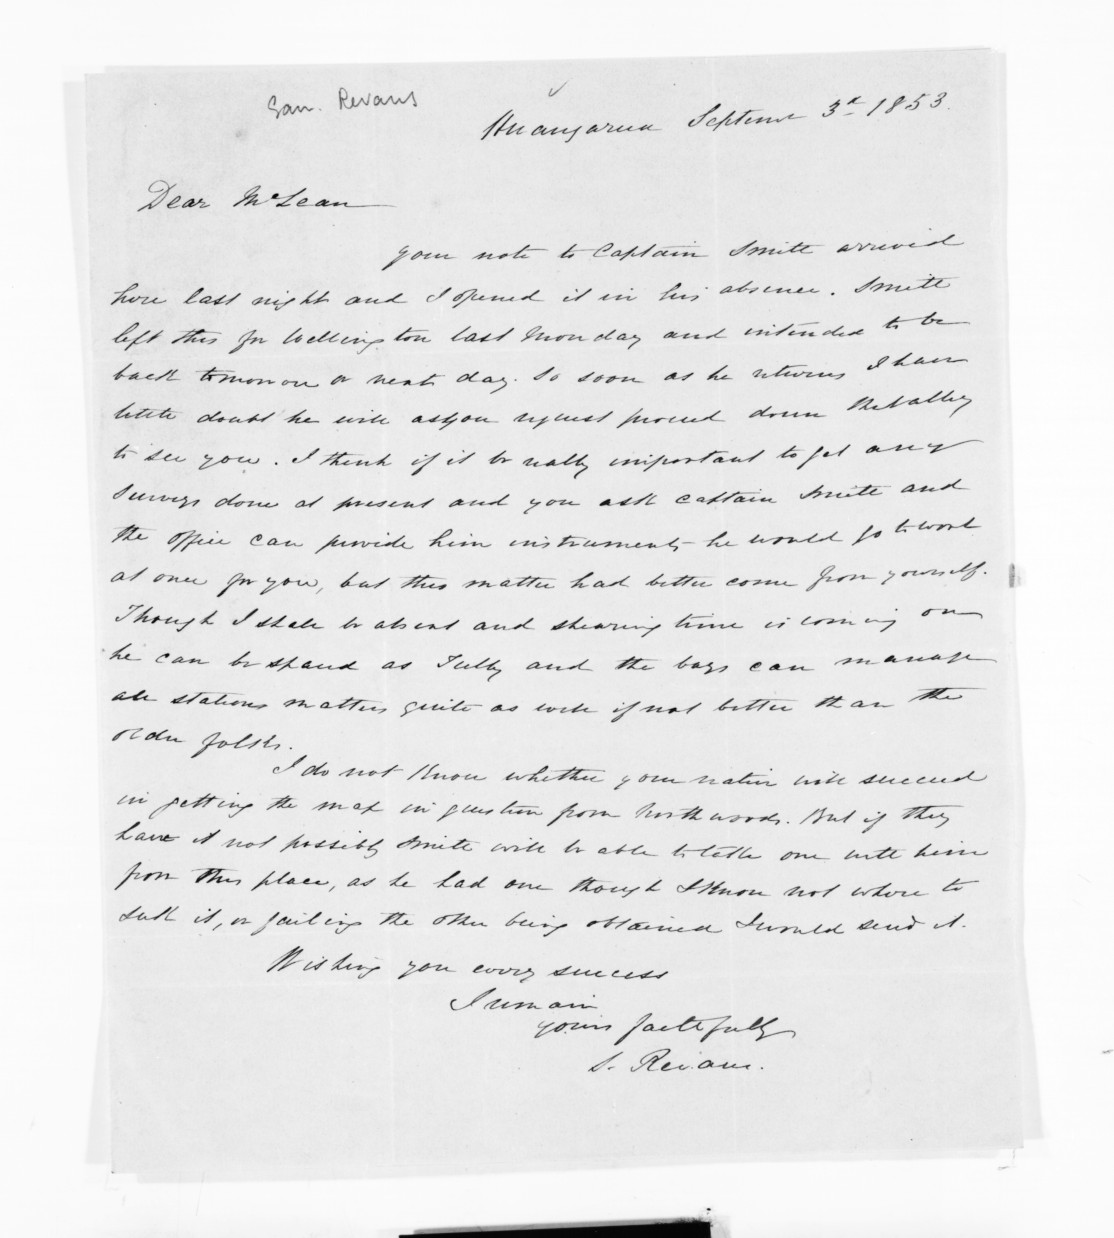 Sam. Revans
Huangarua Septemr 3d. 1853.
Dear McLean
your note to Captain Smith arrived
here last night and I opened it in his absence. Smith
left this for Wellington last Monday and intended to be
back tomorrow or next day. So soon as he returns I have
little doubt he will as you request proceed down the valley
to see you. I think if it be really important to get any
surveys done at present and you ask Captain Smith and
the office can provide him instruments he would go to work
at once for you, but this matter had better come from yourself.
Though I shall be absent and shearing time is coming on
he can be spared as Tully and the boys can manage
all stations matters quite as well if not better than the
older folks.
I do not know whether your native will succeed
in getting the map in question from Northwoods. But if they
have it not possibly Smith will be able to take one with him
from this place, as he had one though I know not where to
seek it, or failing the other being obtained I would send it.
Wishing you every success
I remain
yours faithfully
S. Revans.